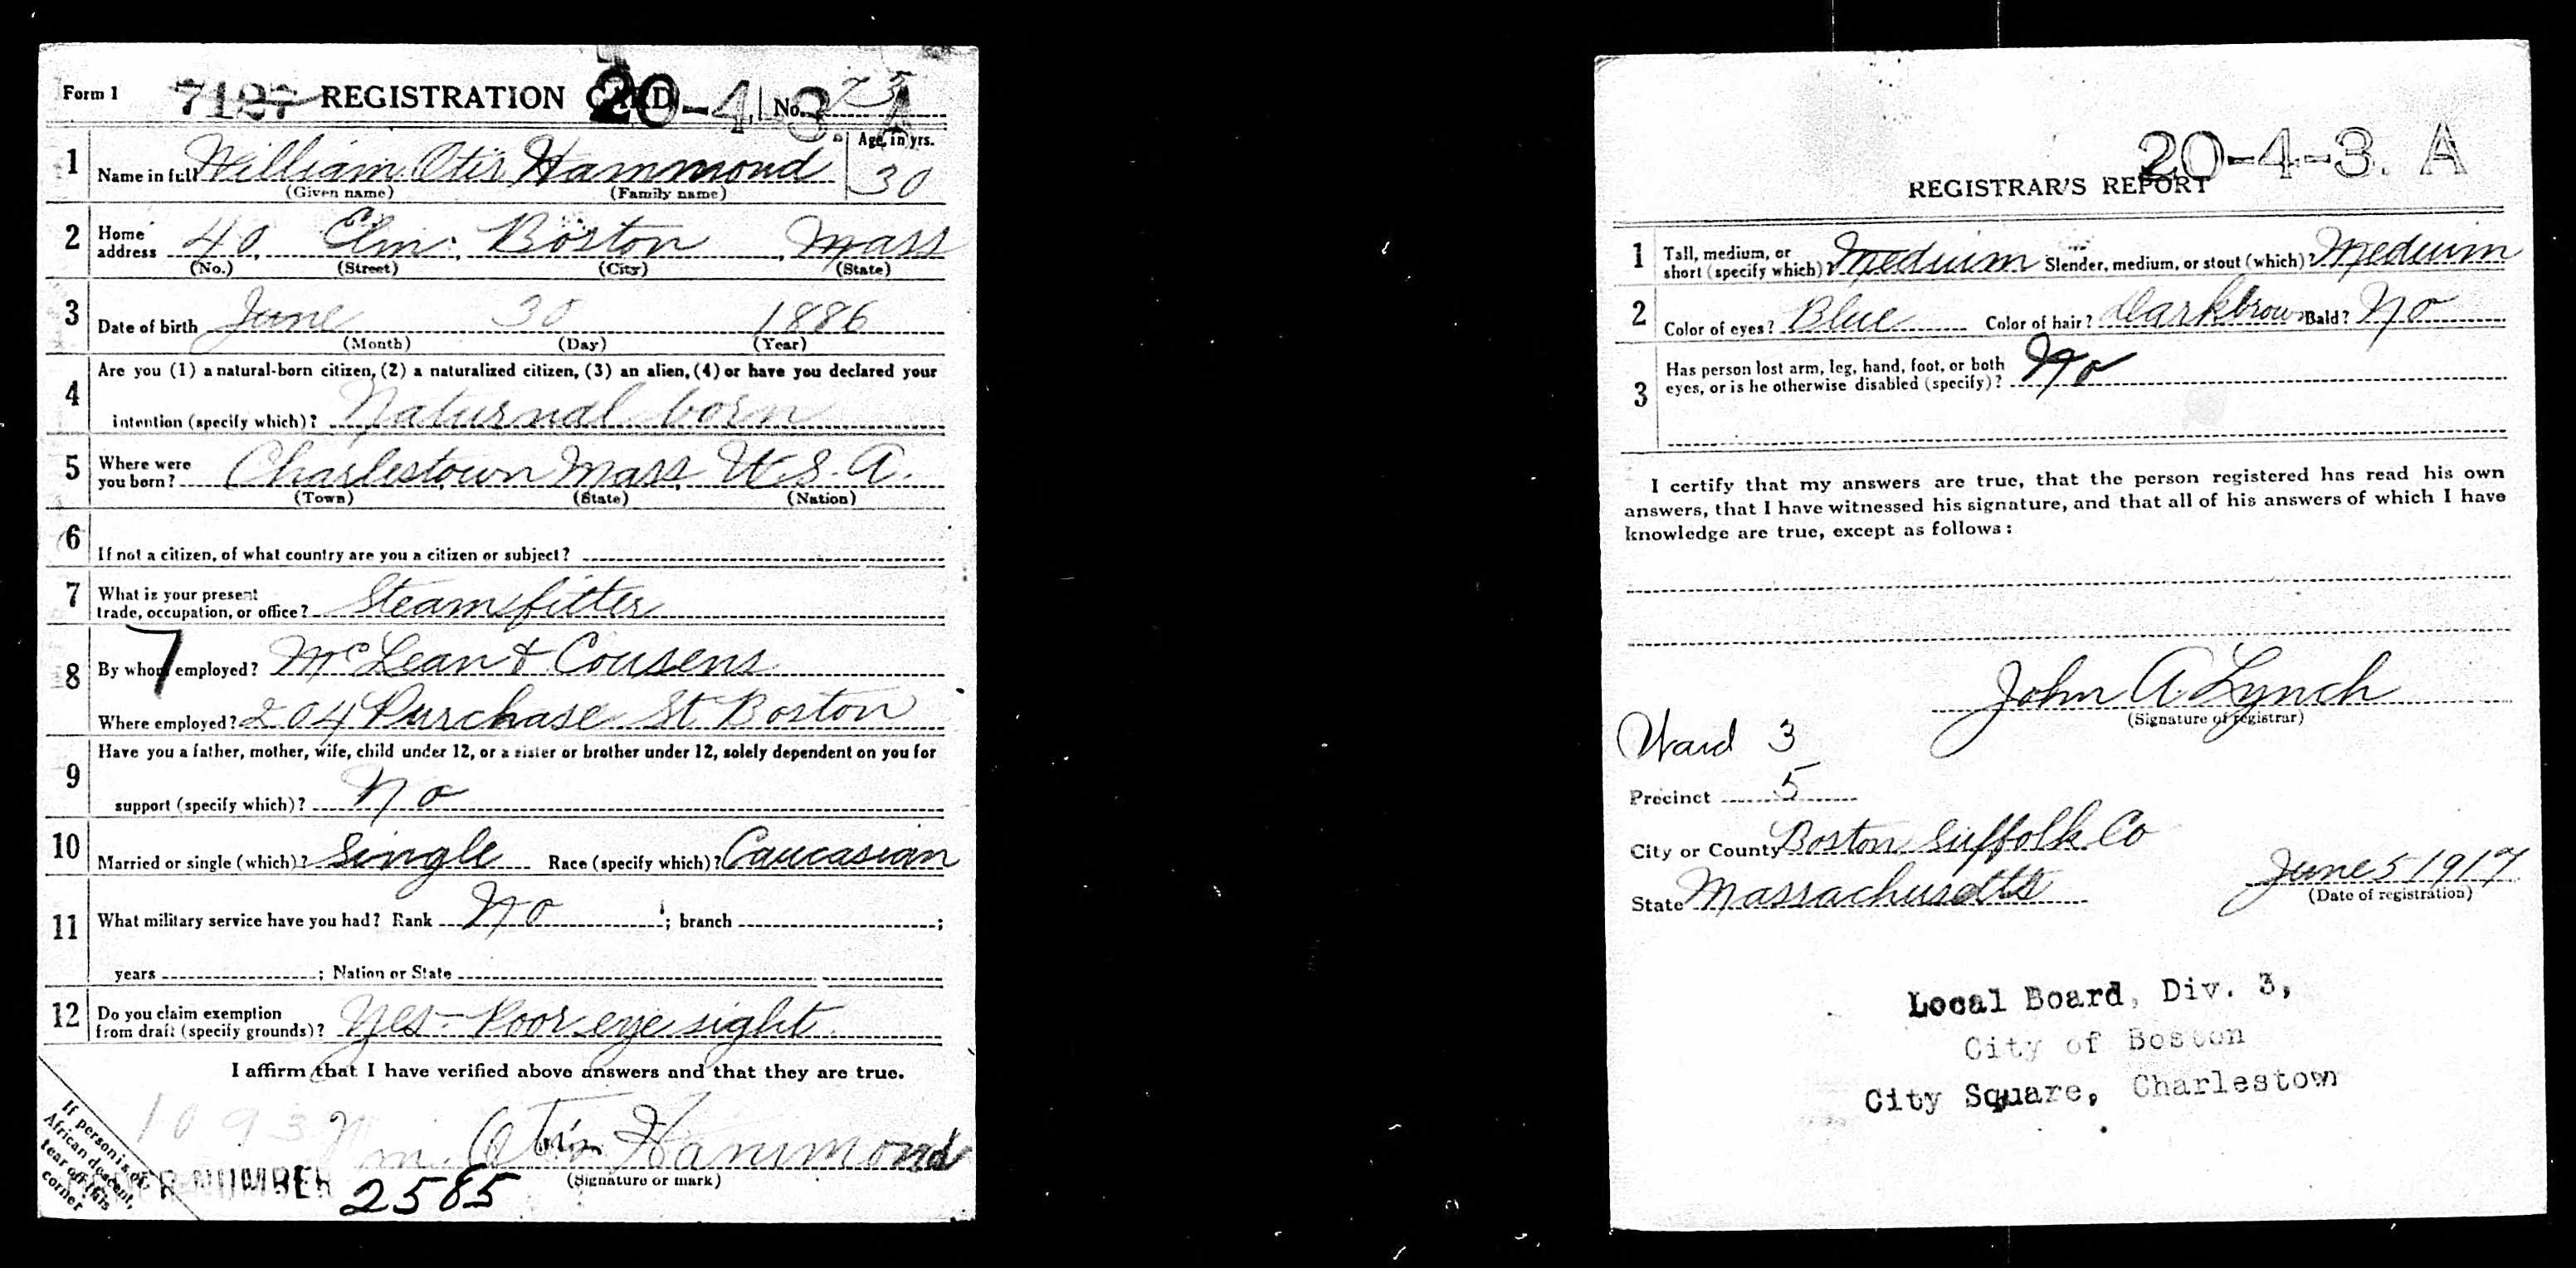 Form 1 7127 REGISTRATION CARD 20-4-3. A No. 75
1 Name in full William Otis Hammond Age, in yrs. 30
(Given name) (Family name)
2 Home address 40 Elm, Boston, Mass
(No.) (Street) (City) (State)
3 Date of birth June 30 1886
(Month) (Day) (Year)
4 Are you (1) a natural-born citizen, (2) a naturalized citizen, (3) an alien, (4) or have you declared your
intention (specify which)? Naturnal born
5 Where were you born? Charlestown Mass U.S.A.
(Town) (State) (Nation)
6 If not a citizen, of what country are you a citizen or subject?
7 What is your present
trade, occupation, or office? Steamfitter
8 By whom employed? McLean & Cousens
Where employed? 204 Purchase St Boston
9 Have you a father, mother, wife, child under 12, or a sister or brother under 12, solely dependent on you for
support (specify which)? No
10 Married or single (which)? Single Race (specify which)? Caucasian
11 What military service have you had? Rank No ; branch ;
years ; Nation or State
12 Do you claim exemption
from draft (specify grounds)? Yes - Poor eye sight
I affirm that I have verified above answers and that they are true.
1093
Wm. Otis Hammond
(Signature or mark)
NUMBER 2585
If person is of
African descent,
tear off this
corner
20-4-3. A
REGISTRAR'S REPORT
1 Tall, medium, or
short (specify which)? Medium Slender, medium, or stout (which)? Medium
2 Color of eyes? Blue Color of hair? Dark brown Bald? No
3 Has person lost arm, leg, hand, foot, or both
eyes, or is he otherwise disabled (specify)? No
I certify that my answers are true, that the person registered has read his own
answers, that I have witnessed his signature, and that all of his answers of which I have
knowledge are true, except as follows:
John A Lynch
(Signature of registrar)
Ward 3
Precinct 5
City or County Boston Suffolk Co
State Massachusetts
June 5 1917
(Date of registration)
Local Board, Div. 3,
City of Boston
City Square, Charlestown